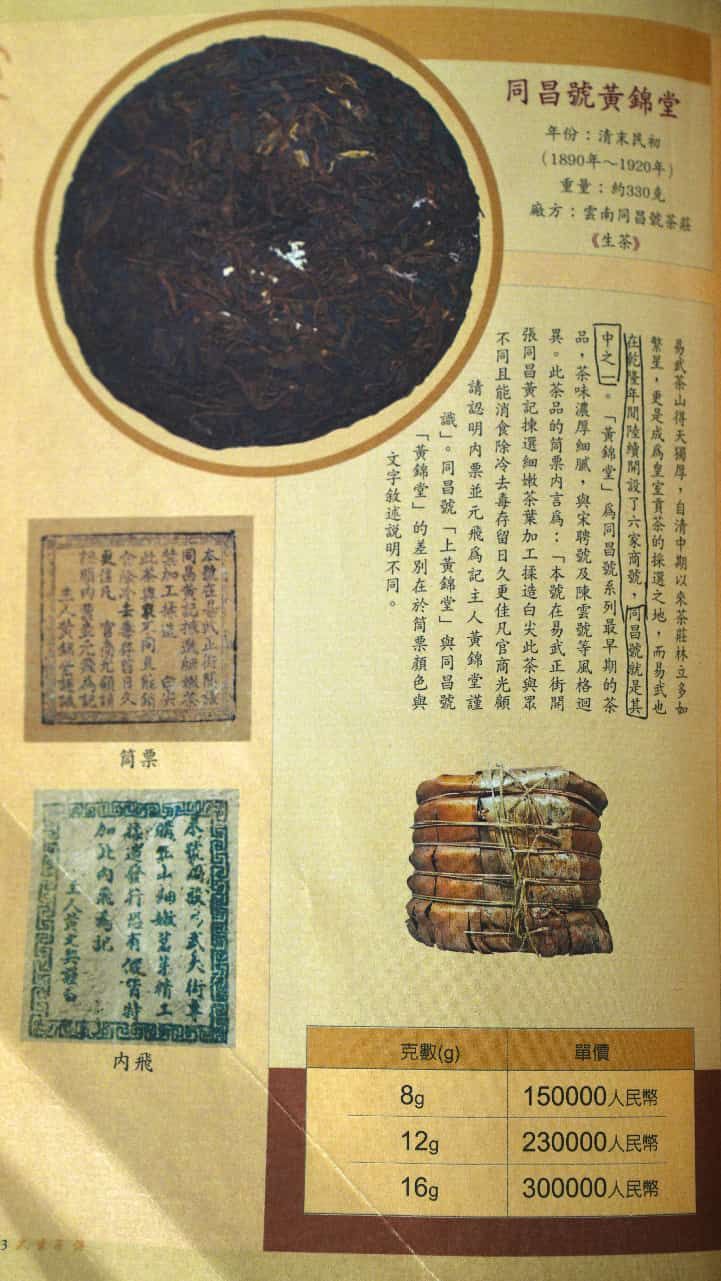 同昌號黃錦堂
年份：清末民初
（1890年～1920年）
重量：約330克
廠方：雲南同昌號茶莊
《生茶》
易武茶山得天獨厚，自清中期以來茶莊林立多如
繁星，更是成為皇室貢茶的採選之地，而易武也
在乾隆年間陸續開設了六家商號，同昌號就是其
中之一。「黃錦堂」為同昌號系列最早期的茶
品，茶味濃厚細膩，與宋聘號及陳雲號等風格迴
異。此茶品的筒票內言為：「本號在易武正街開
張同昌黃記揀選細嫩茶葉加工揉造白尖此茶與眾
不同且能消食除冷去毒存留日久更佳凡官商光顧
請認明內票並元飛為記主人黃錦堂謹
識」。同昌號「上黃錦堂」與同昌號
「黃錦堂」的差別在於筒票顏色與
文字敘述說明不同。
本號在易武正街開張
同昌黃記揀選細嫩茶
葉加工揉造 白尖
此茶與眾不同且能消
食除冷去毒存留日久
更佳凡 官商光顧請
認明內票並元飛為記
主人黃錦堂謹識
筒票
本號開設易武大街專
購正山細嫩茗芽精工
揉造發行恐有假冒特
加此內飛為記
主人黃文興謹白
內飛
克數(g) 單價
8g 150000人民幣
12g 230000人民幣
16g 300000人民幣
3